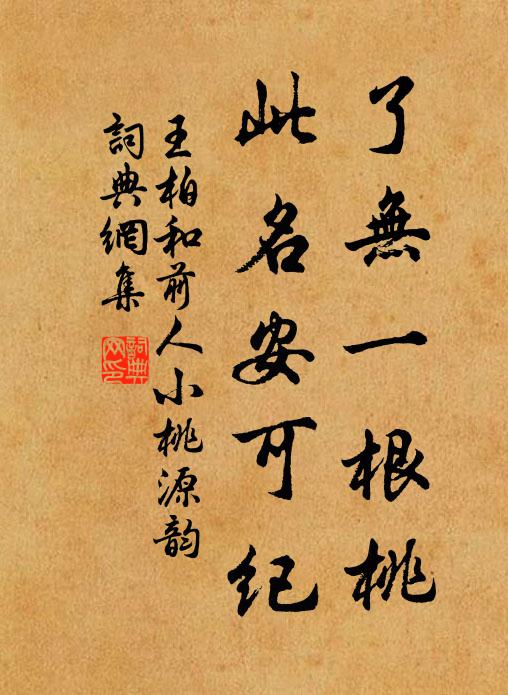 了無一根桃
此名安可紀
王柏和前人小桃源韵
詞典網集
詞典網印